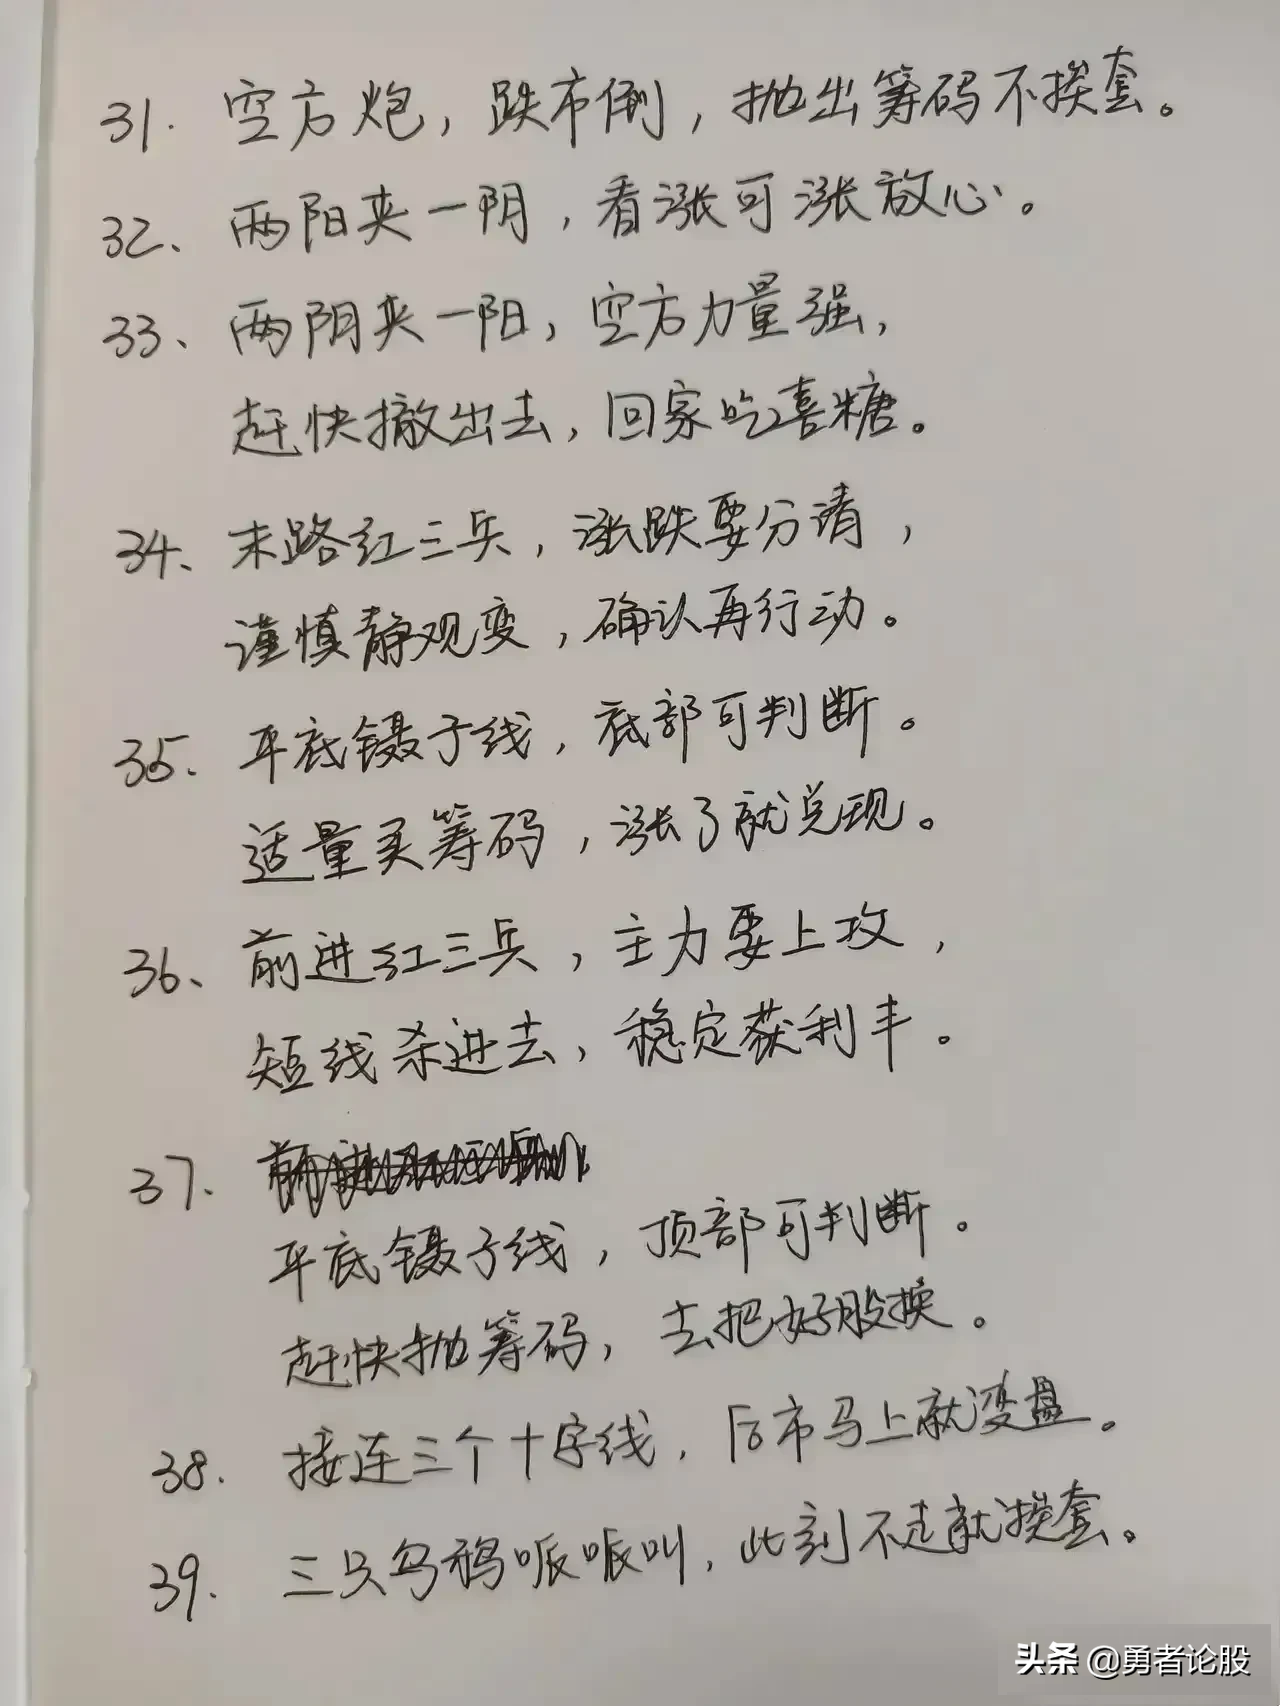 31. 空方炮，跌市倒，抛出筹码不挨套。
32、两阳夹一阴，看涨可涨放心。
33、两阴夹一阳，空方力量强，
赶快撤出去，回家吃喜糖。
34、末路红三兵，涨跌要分清，
谨慎静观变，确认再行动。
35. 平底镊子线，底部可判断。
适量买筹码，涨了就兑现。
36、前进红三兵，主力要上攻，
短线杀进去，稳定获利丰。
37.
平底镊子线，顶部可判断。
赶快抛筹码，去把好股换。
38. 接连三个十字线，后市马上就变盘。
39. 三只乌鸦哌哌叫，此刻不走就挨套。
头条 @勇者论股